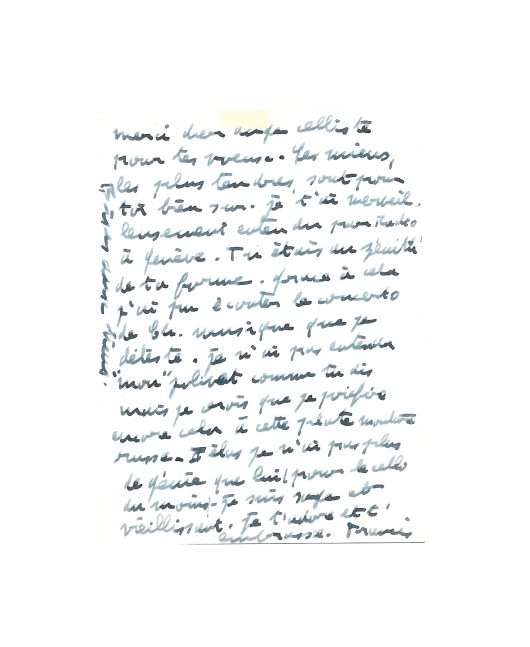 merci cher ange celliste
pour tes voeux. Les miens,
les plus tendres, sont pour
toi bien sur. Je t'ai merveil.
leusement entendu par Radio
à Genève. Tu étais au zénith
de ta forme. grace à cela
j'ai pu écouter le concerto
de Ch. musique que je
déteste. Je n'ai pas entendu
"mon" comme tu dis
mais je crois que je préfère
encore cela à cette plate
russe. Hélas je n'ai pas plus
de génie que lui (pour le cello
du moins). Je suis sage et
vieillissant. Je t'adore et t'
embrasse. Francis